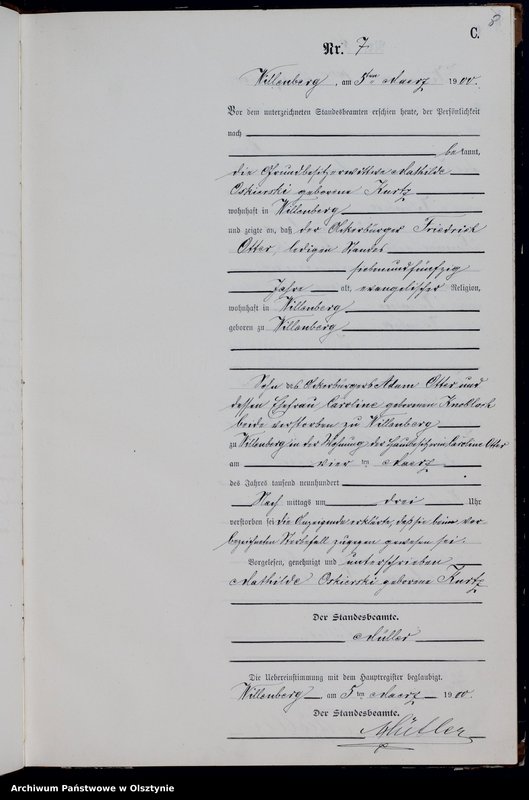 8
C.
Nr. 7
Willenberg, am 5ten Maerz 1900.
Vor dem unterzeichneten Standesbeamten erschien heute, der Persönlichkeit
nach
bekannt,
die Grundbesitzerwittwe Mathilde
Oskierski geborene Kurtz
wohnhaft in Willenberg
und zeigte an, daß der Ackerbürger Friedrich
Otter, ledigen Standes
siebenundfünfzig
Jahre alt, evangelischer Religion,
wohnhaft in Willenberg
geboren zu Willenberg
Sohn des Ackerbürgers Adam Otter und
dessen Ehefrau Caroline geborenen Knoblock
beide verstorben zu Willenberg
zu Willenberg in der Wohnung der Hausbesitzerin Caroline Otter
am vier ten Maerz
des Jahres tausend neunhundert
Nach mittags um drei Uhr
verstorben sei die Anzeigende erklärte, daß sie beim vor
bezeichneten Sterbefall zugegen gewesen sei.
Vorgelesen, genehmigt und unterschrieben
Mathilde Oskierski geborene Kurtz
Der Standesbeamte.
Müller
Die Uebereinstimmung mit dem Hauptregister beglaubigt.
Willenberg, am 5ten Maerz 1900.
Der Standesbeamte.
Müller
Archiwum Państwowe w Olsztynie